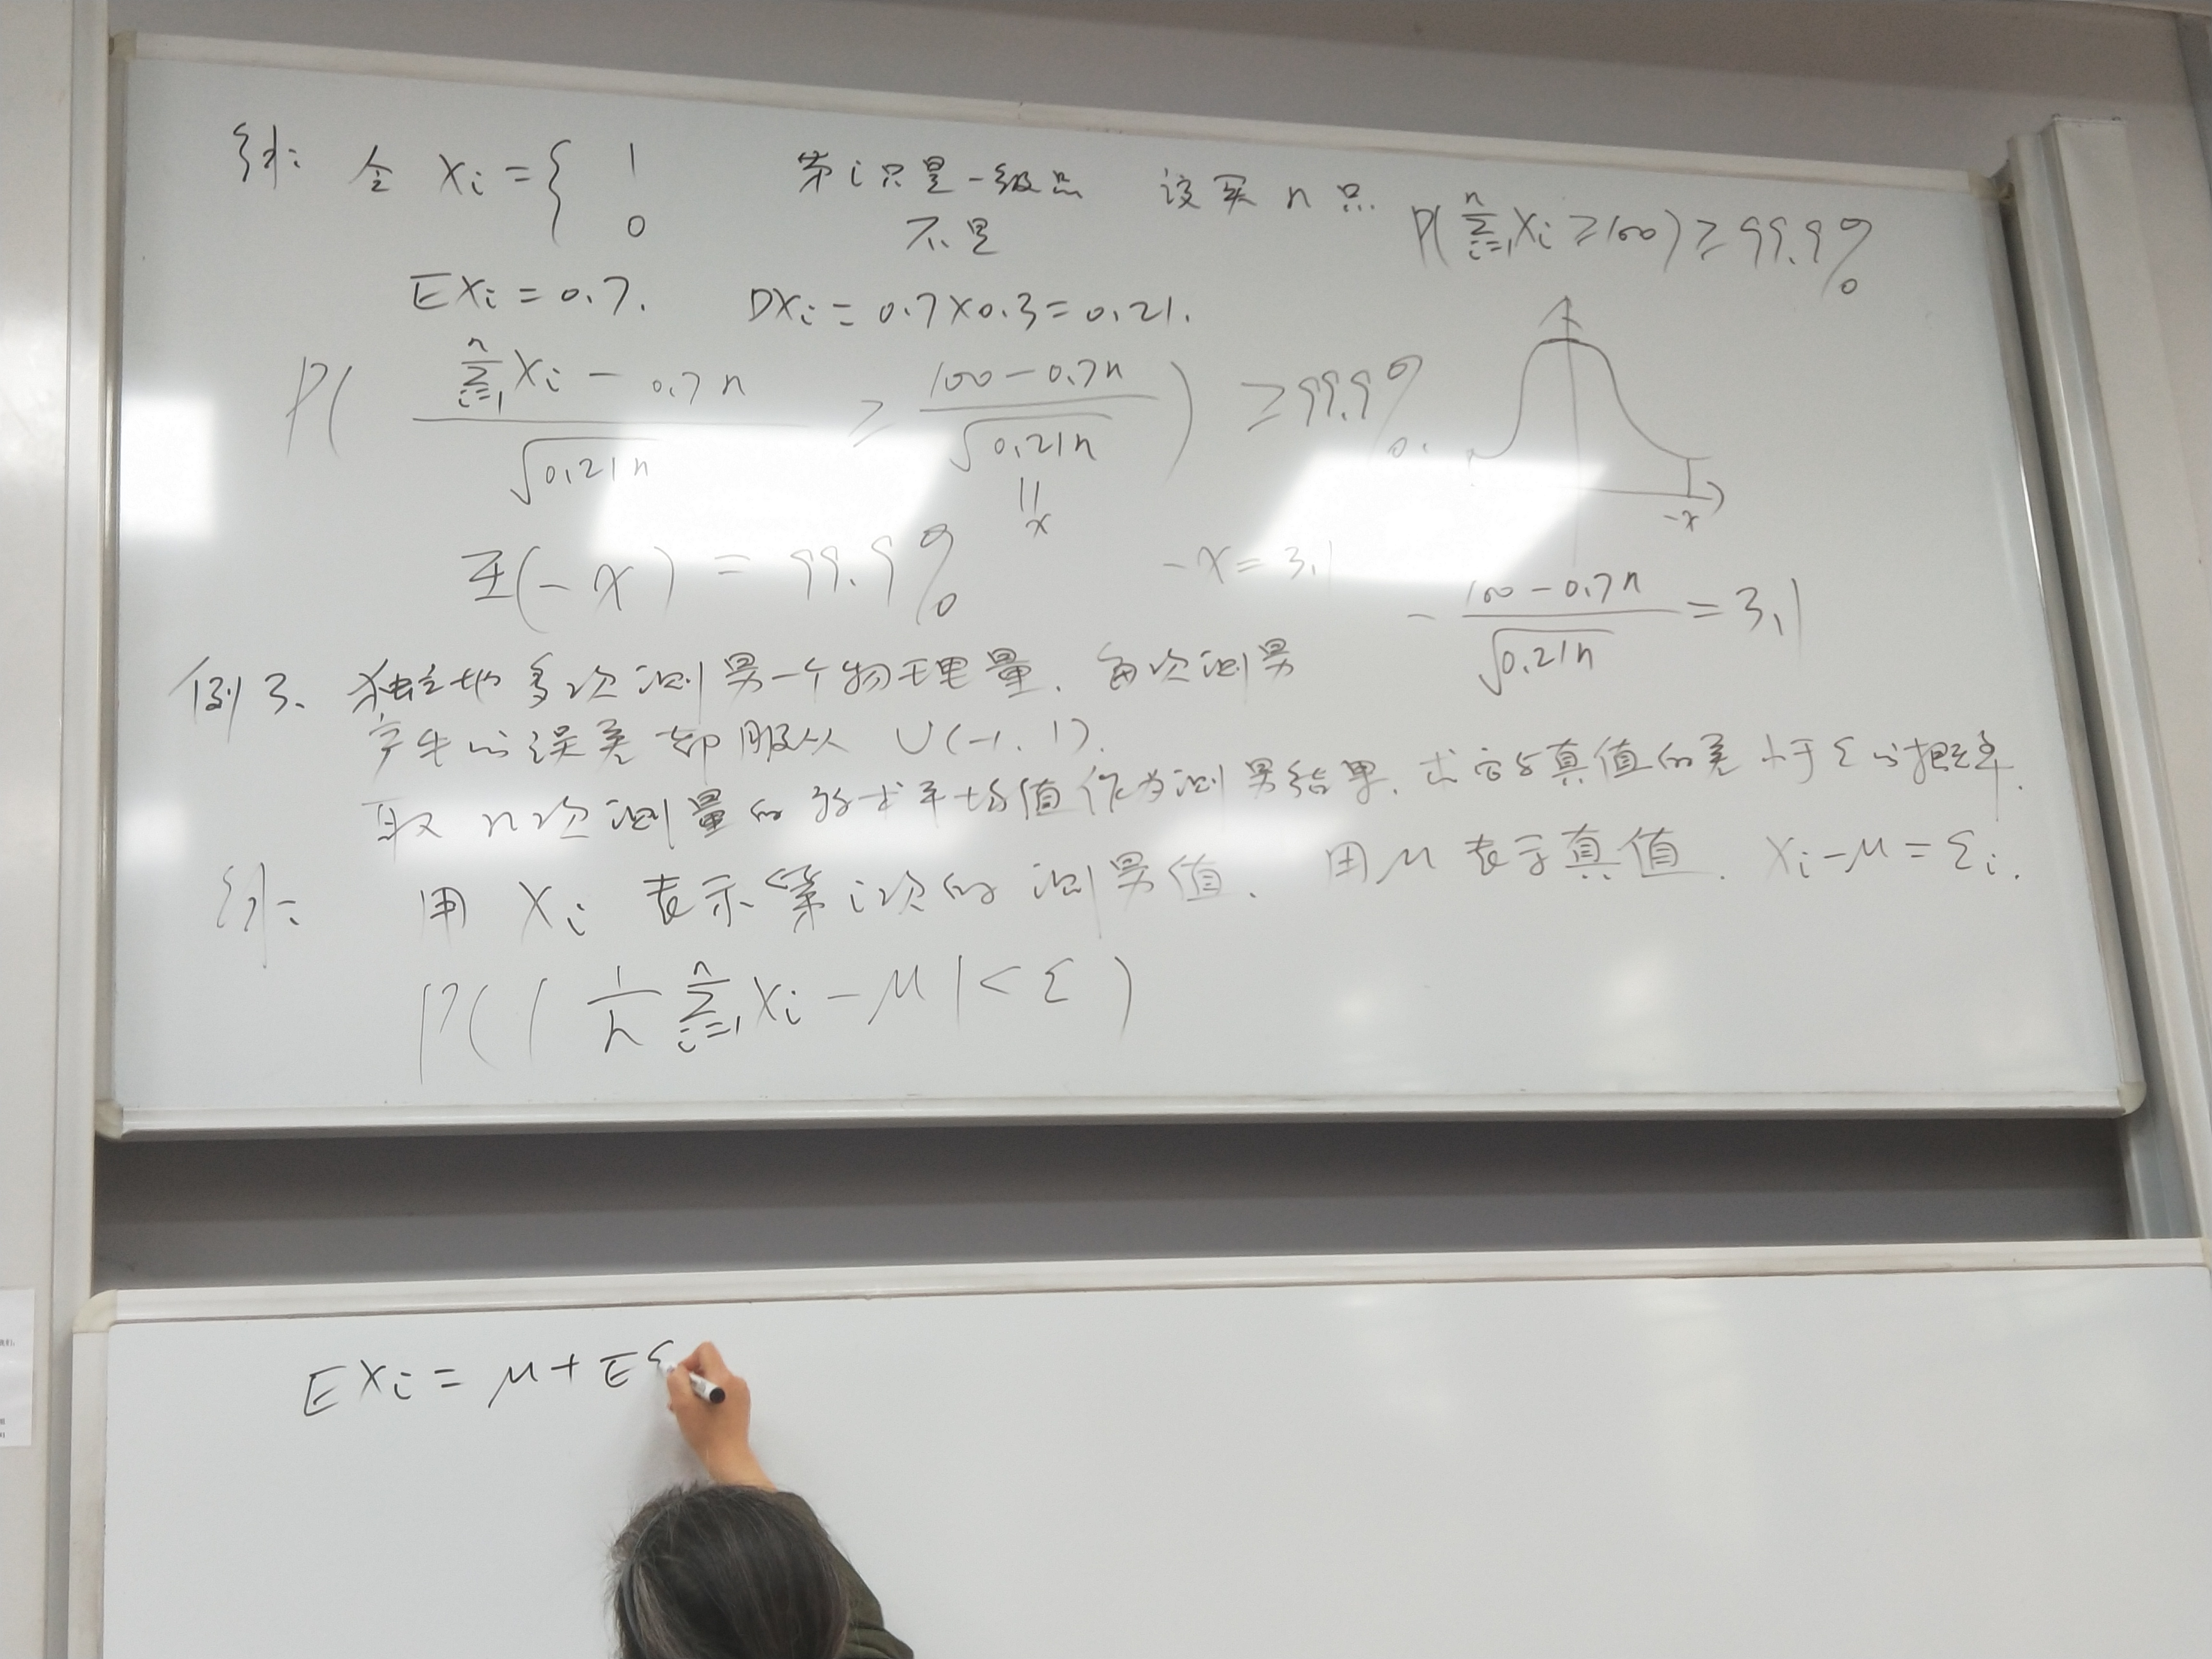 解: 令 Xi = { 1 第i只是一级品 设买 n 只. P(∑_{i=1}^{n} Xi ≥ 100) ≥ 99.9%
0 不是
EXi = 0.7. DXi = 0.7×0.3 = 0.21.
P( (∑_{i=1}^{n} Xi − 0.7n)/√(0.21n) ≥ (100 − 0.7n)/√(0.21n) ) ≥ 99.9%
0.
|| x
-x
Φ(−x) = 99.9% −x = 3.1 −(100 − 0.7n)/√(0.21n) = 3.1
例3、独立地多次测量一个物理量. 每次测量
产生的误差都服从 U(−1, 1).
取 n次测量的算术平均值作为测量结果. 求它与真值的差小于 ε 的概率.
解: 用 Xi 表示第i次的测量值. 用 μ 表示真值. Xi − μ = εi.
P( | 1/n ∑_{i=1}^{n} Xi − μ | < ε )
EXi = μ + Eε